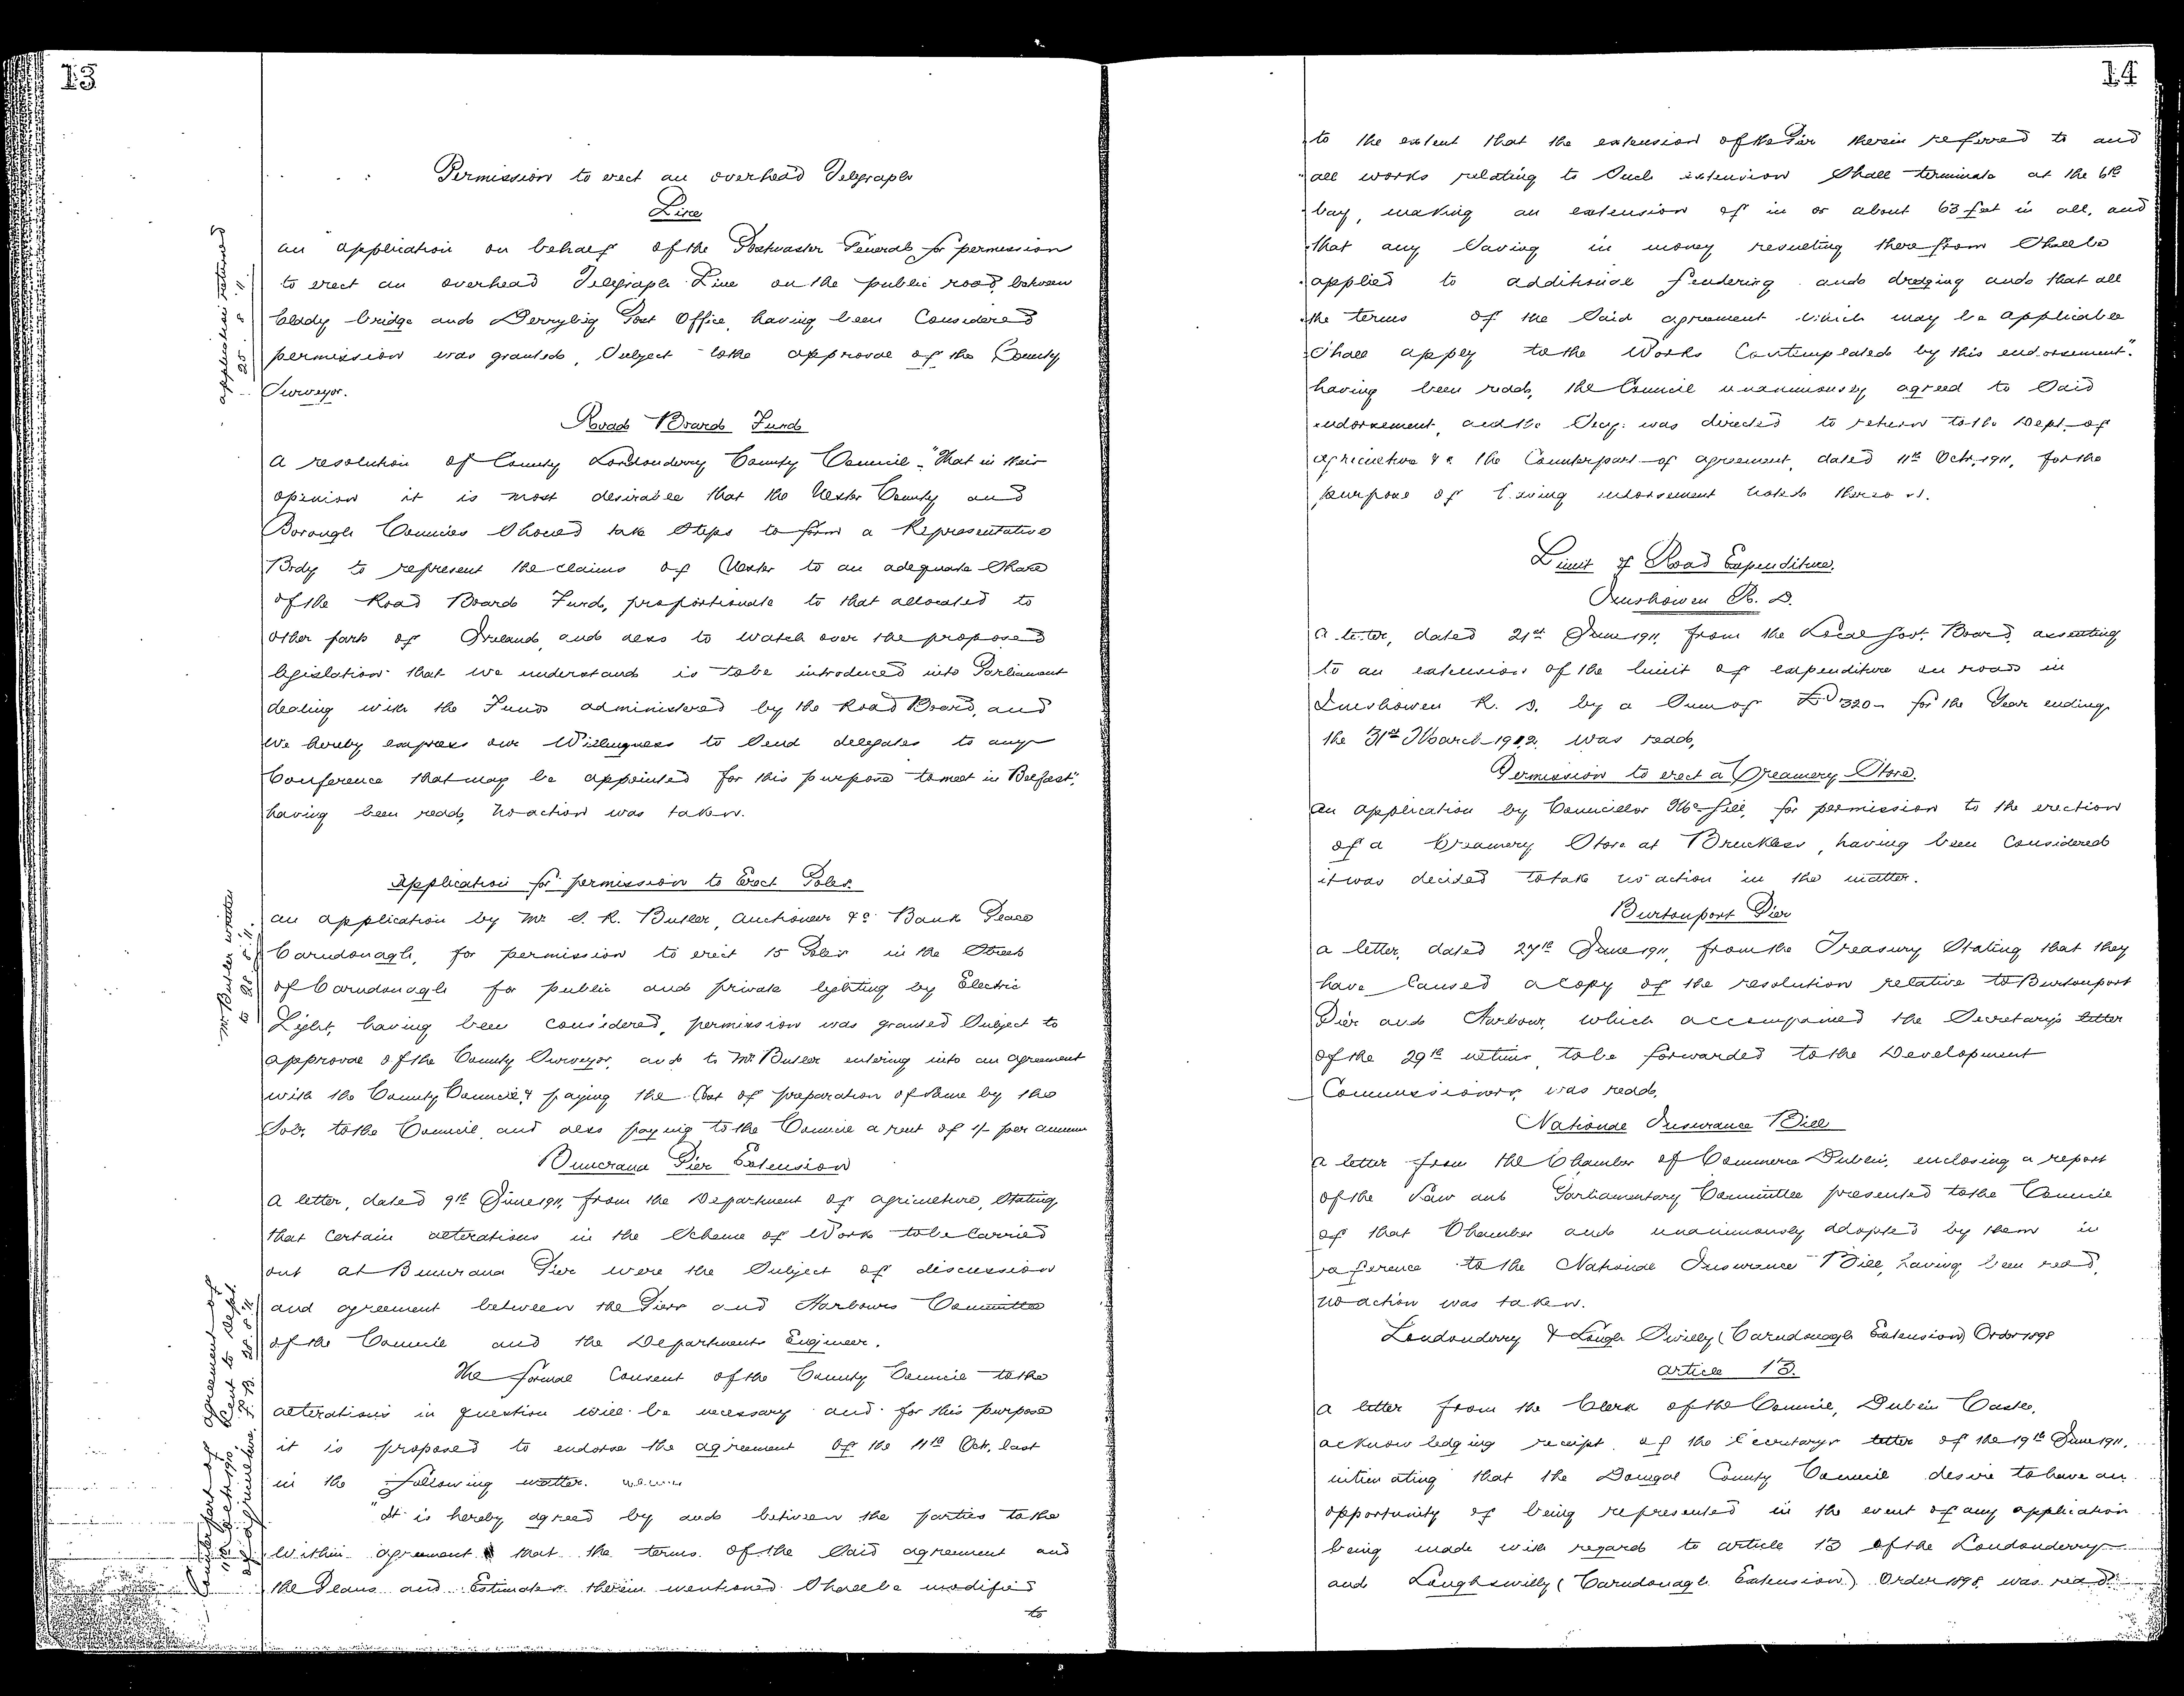 13
Permission to erect an overhead Telegraph
Line
an application on behalf of the Postmaster General for permission
to erect an overhead Telegraph Line on the public road between
Clady bridge and Derrybeg Post Office, having been Considered
permission was granted, Subject to the approval of the County
Surveyor.
application returned
25. 8. 11.
Road Board Fund
A resolution of County Londonderry County Council - "That in their
opinion it is most desirable that the Ulster County and
Borough Councils Should take Steps to form a Representative
Body to represent the claims of Ulster to an adequate Share
of the Road Board Fund, proportionate to that allocated to
other parts of Ireland, and also to watch over the proposed
legislation that we understand is to be introduced into Parliament
dealing with the Funds administered by the Road Board, and
We hereby express our Willingness to Send delegates to any
Conference that may be appointed for this purpose to meet in Belfast",
having been read, no action was taken.
Application for permission to Erect Poles.
an application by Mr S. R. Butler, Auctioneer &c. Bank Place
Carndonagh, for permission to erect 15 Poles in the Streets
of Carndonagh for public and private lighting by Electric
Light, having been considered, permission was granted Subject to
approval of the County Surveyor, and to Mr Butler entering into an agreement
with the County Council & paying the Cost of preparation of Same by the
Solr. to the Council, and also paying to the Council a rent of 1/- per annum
Mr Butler written
to
Buncrana Pier Extension
A letter, dated 9th June 1911, from the Department of Agriculture, Stating
that Certain alterations in the Scheme of Work to be Carried
out at Buncrana Pier were the Subject of discussion
and agreement between the Piers and Harbours Committee
of the Council and the Departments Engineer.
The formal Consent of the County Council to the
alterations in question will be necessary and for this purpose
it is proposed to endorse the agreement of the 11th Oct. last
in the following matter.
"It is hereby agreed by and between the parties to the
Within agreement that the terms of the Said agreement and
the Plans and Estimates therein mentioned Shall be modified
to
Counterpart of agreement of
11th Octr. 1910, Sent to Dept.
of Agriculture.
14
to the extent that the extension of the Pier therein referred to and
all works relating to Such extension Shall terminate at the 6th
bay, making an extension of in or about 63 feet in all, and
that any Saving in money resulting therefrom Shall be
applied to additional fendering and dredging and that all
the terms of the Said agreement which may be applicable
Shall apply to the Works Contemplated by this endorsement".
having been read, the Council unanimously agreed to Said
endorsement, and the Secy. was directed to return to the Dept. of
Agriculture &c the Counterpart of agreement, dated 11th Octr. 1911, for the
purpose of having endorsement noted thereon.
Limit of Road Expenditure.
Inishowen R. D.
A letter, dated 21st June 1911, from the Local Govt. Board, assenting
to an extension of the limit of expenditure on roads in
Inishowen R. D. by a Sum of £320- for the Year ending
the 31st March 1912. was read,
Permission to erect a Creamery Store.
An application by Councillor McGill, for permission to the erection
of a Creamery Store at Bruckless, having been Considered
it was decided to take no action in the matter.
Burtonport Pier
a letter, dated 27th June 1911, from the Treasury Stating that they
have Caused a Copy of the resolution relative to Burtonport
Pier and Harbour, which accompanied the Secretary's letter
of the 29th ultimo, to be forwarded to the Development
Commissioners, was read,
National Insurance Bill
A letter from the Chamber of Commerce Dublin, enclosing a report
of the Law and Parliamentary Committee presented to the Council
of that Chamber and unanimously adopted by them in
reference to the National Insurance Bill, having been read,
no action was taken.
Londonderry & Lough Swilly (Carndonagh Extension) Order 1898
Article 13.
A letter from the Clerk of the Council, Dublin Castle,
acknowledging receipt of the Secretarys letter of the 19th June 1911,
intimating that the Donegal County Council desire to have an
opportunity of being represented in the event of any application
being made with regard to article 13 of the Londonderry
and Loughswilly (Carndonagh Extension) Order 1898 was read.